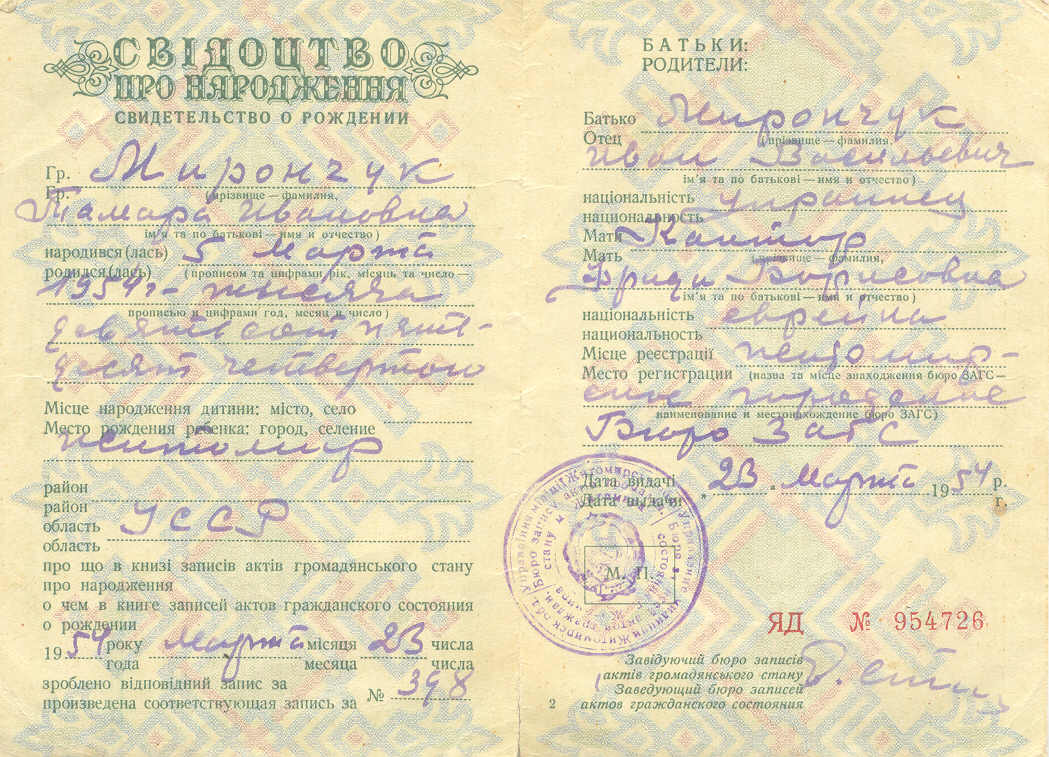 СВІДОЦТВО
ПРО НАРОДЖЕННЯ
СВИДЕТЕЛЬСТВО О РОЖДЕНИИ
Гр. Мирончук
Гр. (прізвище—фамилия,
Тамара Ивановна
ім'я та по батькові—имя и отчество)
народився(лась) 5 Марта
родился(лась) (прописом та цифрами рік, місяць та число—
1954г.- тысяча
прописью и цифрами год, месяц и число)
девятьсот пять-
десят четвертого
Місце народження дитини: місто, село
Место рождения ребенка: город, селение
житомир
район
район
область УССР
область
про що в книзі записів актів громадянського стану
про народження
о чем в книге записей актов гражданского состояния
о рождении
1954 року Марта місяця 23 числа
года месяца числа
зроблено відповідний запис за
произведена соответствующая запись за № 398
БАТЬКИ:
РОДИТЕЛИ:
Батько Мирончук
Отец (прізвище—фамилия,
Иван Васильевич
ім'я та по батькові—имя и отчество)
національність украинец
национальность
Мати Кантор
Мать (прізвище—фамилия,
Фрида Борисовна
ім'я та по батькові—имя и отчество)
національність еврейка
национальность
Місце реєстрації житомир-
Место регистрации (назва та місце знаходження бюро ЗАГС—
ское городское
наименование и местонахождение бюро ЗАГС)
Бюро Загс
Дата видачі 23 Марта 1954 р.
Дата выдачи г.
М. П.
ЯД № 954726
Завідуючий бюро записів
актів громадянського стану
Заведующий бюро записей
2 актов гражданского состояния